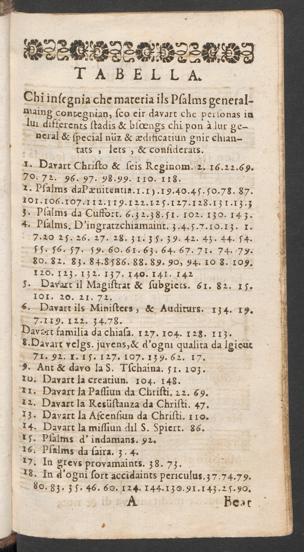 TABELLA.
Chi insegnia che materia ils Psalms general-
maing contegnian, sco eir davart che personas in
lur differents stadis & bsœngs chi pon à lur ge-
neral & special nüz & ædificatiun gnir chian-
tats, lets, & considerats.
1. Davart Christo & seis Reginom. 2. 16.22.69.
70. 72. 96. 97. 98.99. 110. 118.
2. Psalms daPænitentia.1.13.19.40.45.50.78.87.
101.106.107.112.119.122.125.127.128.131.13.3
3. Psalms da Cuffort. 6.32.38.51. 102. 130. 143.
4. Psalms. D'ingratzchiamaint. 3.4.5.7.10.13. 1.
7.20 25. 26. 27. 28. 31. 35. 39. 42. 43. 44. 54.
55. 56. 57. 59. 60. 61. 63. 64. 67. 71. 74. 79.
80. 82. 83. 84.8586. 88. 89. 90. 94. 10 8. 109.
120. 123. 132. 137. 140. 141. 142
5. Davart il Magistrat & subgiets. 61. 82. 15.
101. 20. 21. 72.
6. Davart ils Ministers, & Auditurs. 134. 19.
7.119. 122. 34.78.
Davart familia da chiasa. 127. 104. 128. 113.
8.Davart velgs. juvens,& d'ogni qualita da lgieut
71. 92. 1. 15. 127. 107. 139. 62. 17.
9. Ant & davo la S. Tschaina. 51. 103.
10. Davart la creatiun. 104. 148.
11. Davart la Passiun da Christi. 22. 69.
12. Davart la Resüstanza da Christi. 47.
13. Davart la Ascensiun da Christi. 110.
14. Davart la missiun dil S. Spiert. 86.
15. Psalms d' indamans. 92.
16. Psalms da saira. 3. 4.
17. In grevs provamaints. 38. 73.
18. In d'ogni sort accidaints periculus.37.74.79.
80. 83. 35. 46. 60. 124. 144.130.91.143.25.90.
A